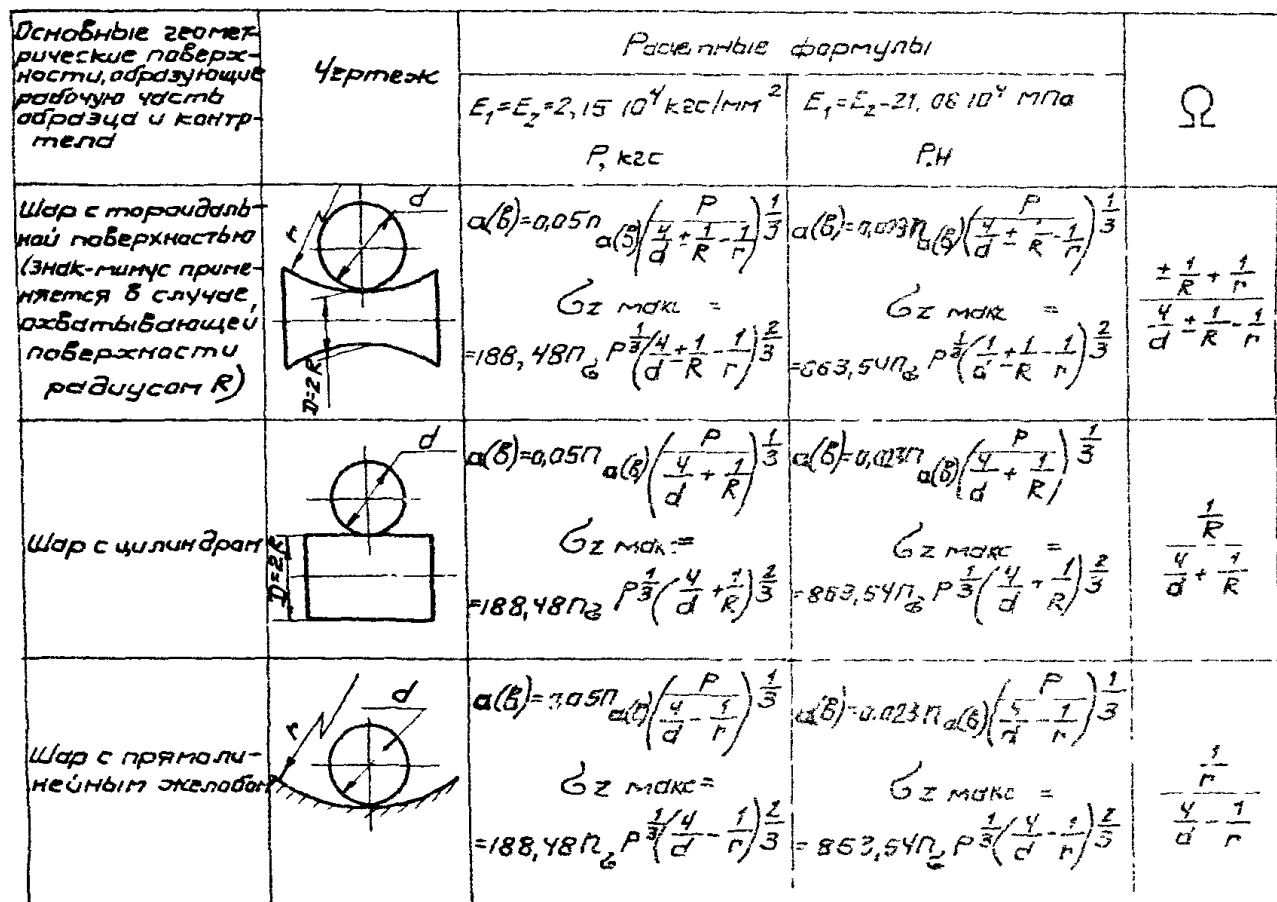 Основные геомет-
рические поверх-
ности, образующие
рабочую часть
образца и контр-
тела
Чертеж
Расчетные формулы
E₁=E₂=2,15 10⁴ кгс/мм²
P, кгс
E₁=E₂-21,06 10⁴ МПа
P.Н
Ω
Шар с тороидаль-
ной поверхностью
(знак-минус приме-
няется в случае,
охватывающей
поверхности
радиусом R)
r
d
D=2R
a(в)=0,05n a(в)(P/(4/d ± 1/R - 1/r))^1/3
Gz макс =
=188,48n_б P^1/3(4/d ± 1/R - 1/r)^2/3
a(в)=0,023n a(в)(P/(4/d ± 1/R - 1/r))^1/3
Gz макс =
=863,54n_б P^1/3(1/d ± 1/R - 1/r)^2/3
(± 1/R + 1/r)/(4/d ± 1/R - 1/r)
Шар с цилиндром
d
D=2R
a(в)=0,05n a(в)(P/(4/d + 1/R))^1/3
Gz макс=
=188,48n_б P^1/3(4/d + 1/R)^2/3
a(в)=0,023n a(в)(P/(4/d + 1/R))^1/3
Gz макс =
=863,54n_б P^1/3(4/d + 1/R)^2/3
(1/R)/(4/d + 1/R)
Шар с прямоли-
нейным желобом
r
d
a(в)=0,05n a(в)(P/(4/d - 1/r))^1/3
Gz макс=
=188,48n_б P^1/3(4/d - 1/r)^2/3
a(в)=0.023n a(в)(P/(4/d - 1/r))^1/3
Gz макс =
= 863,54n_б P^1/3(4/d - 1/r)^2/3
(1/r)/(4/d - 1/r)